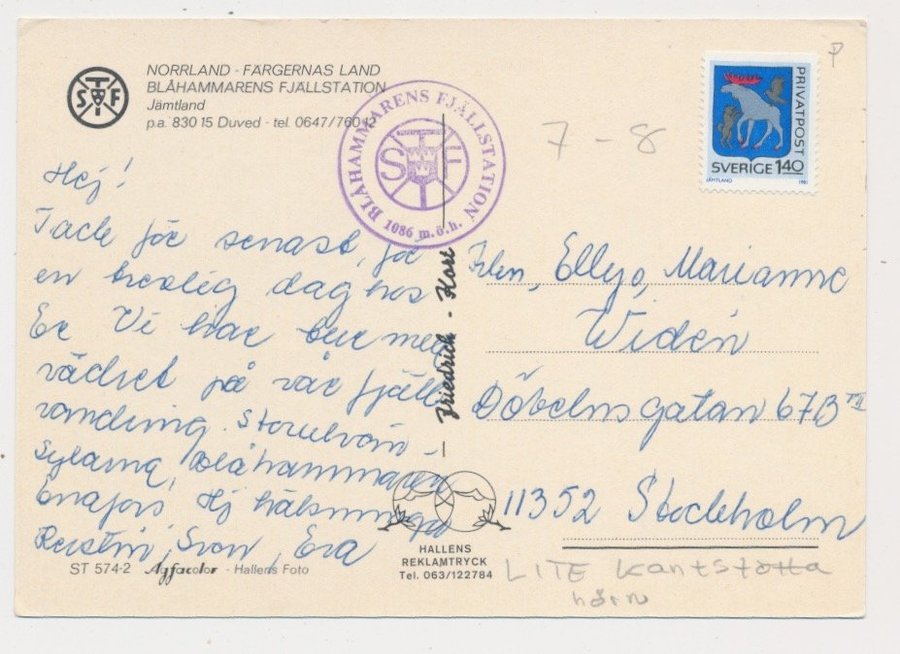 NORRLAND - FÄRGERNAS LAND
BLÅHAMMARENS FJÄLLSTATION
Jämtland
p.a. 830 15 Duved - tel. 0647/760 12
STF
BLÅHAMMARENS FJÄLLSTATION
STF
1086 m.ö.h.
7-8
P
PRIVATPOST
SVERIGE 1.40
JÄMTLAND 1981
Hej!
Tack för senast, för
en trevlig dag hos
Er Vi har tur med
vädret på vår fjäll
vandring. Storulvån -
Sylarna, Blåhammaren
Enafors, Hej hälsningar
Kerstin, Sven, Eva
Friedrich - Kort
Ellyo, Marianne
Widén
Döbelnsgatan 67B
11352 Stockholm
HALLENS
REKLAMTRYCK
Tel. 063/122784
ST 574-2 Agfacolor - Hallens Foto
LITE kantstötta
hörn